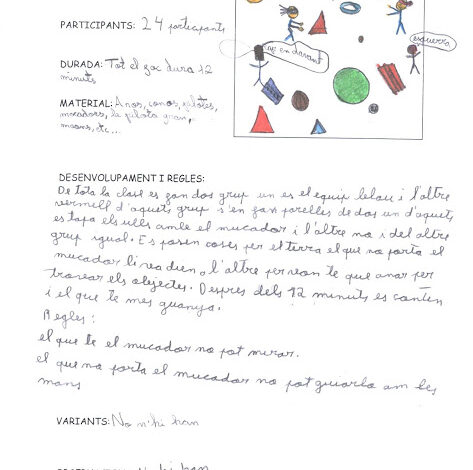 PARTICIPANTS: 24 participants
esquerra
ves en davant
DURADA: Tot el joc dura 12
minuts
MATERIAL: Anos, conos, pilotes,
mocadors, la pilota gran,
maons, etc...
DESENVOLUPAMENT I REGLES:
De tota la clase es fan dos grup un es el equip blau i l'altre
vermell d'aquets grup s'en fan parelles de dos un d'aquets
es tapa els ulls amb el mucador i l'altre no i del altre
grup igual. Es posen coses per el terra el que no porta el
mucador li va dien a l'altre per on te que anar per
trovar els objectes. Despres dels 12 minuts es conten
i el que te mes guanya.
Regles:
el que te el mucador no pot mirar.
el que no porta el mucador no pot guiarlo am les
mans
VARIANTS: No n'hi han
n'hi han